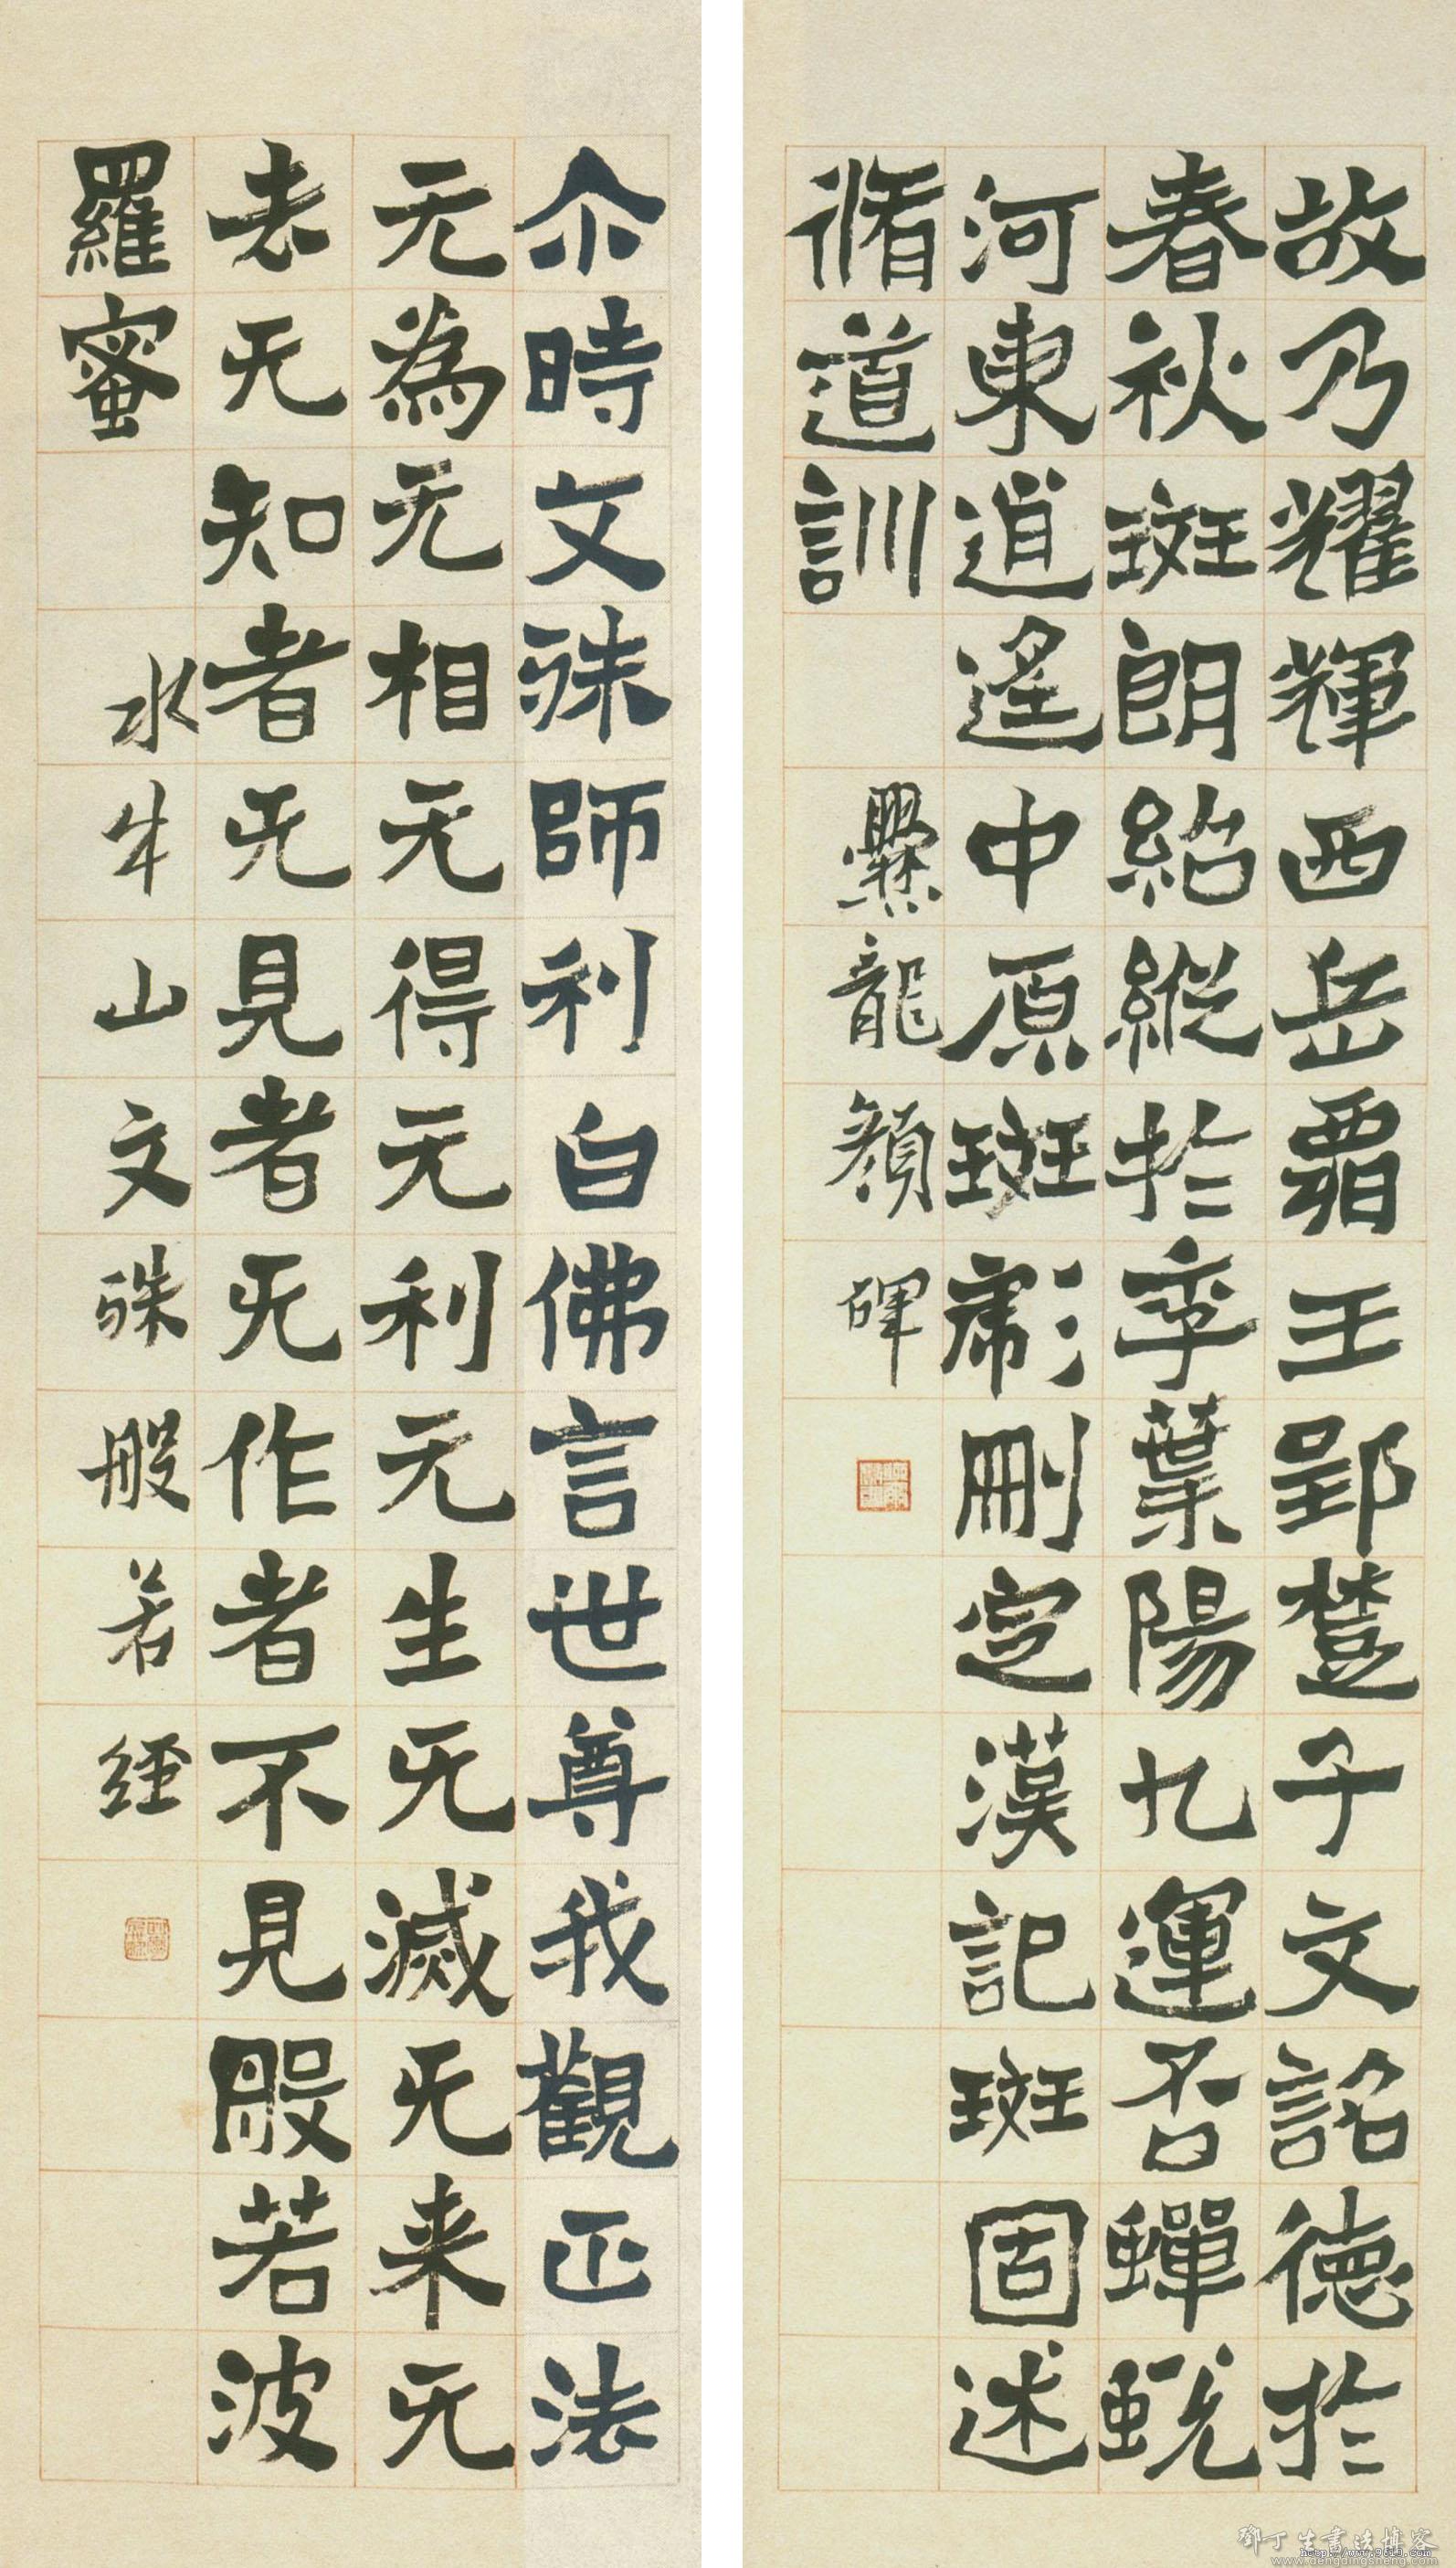 故乃耀輝西岳霸王郢楚子文詺德於
春秋斑朗紹縱於季葉陽九運否蟬蛻
河東逍遙中原斑彪刪定漢記斑固述
脩道訓
爨龍顏碑
尒時文殊師利白佛言世尊我觀正法
无為无相无得无利无生无滅无来无
去无知者无見者无作者不見般若波
羅蜜
水牛山文殊般若经
鄧丁生書法博客
www.dengdingsheng.com